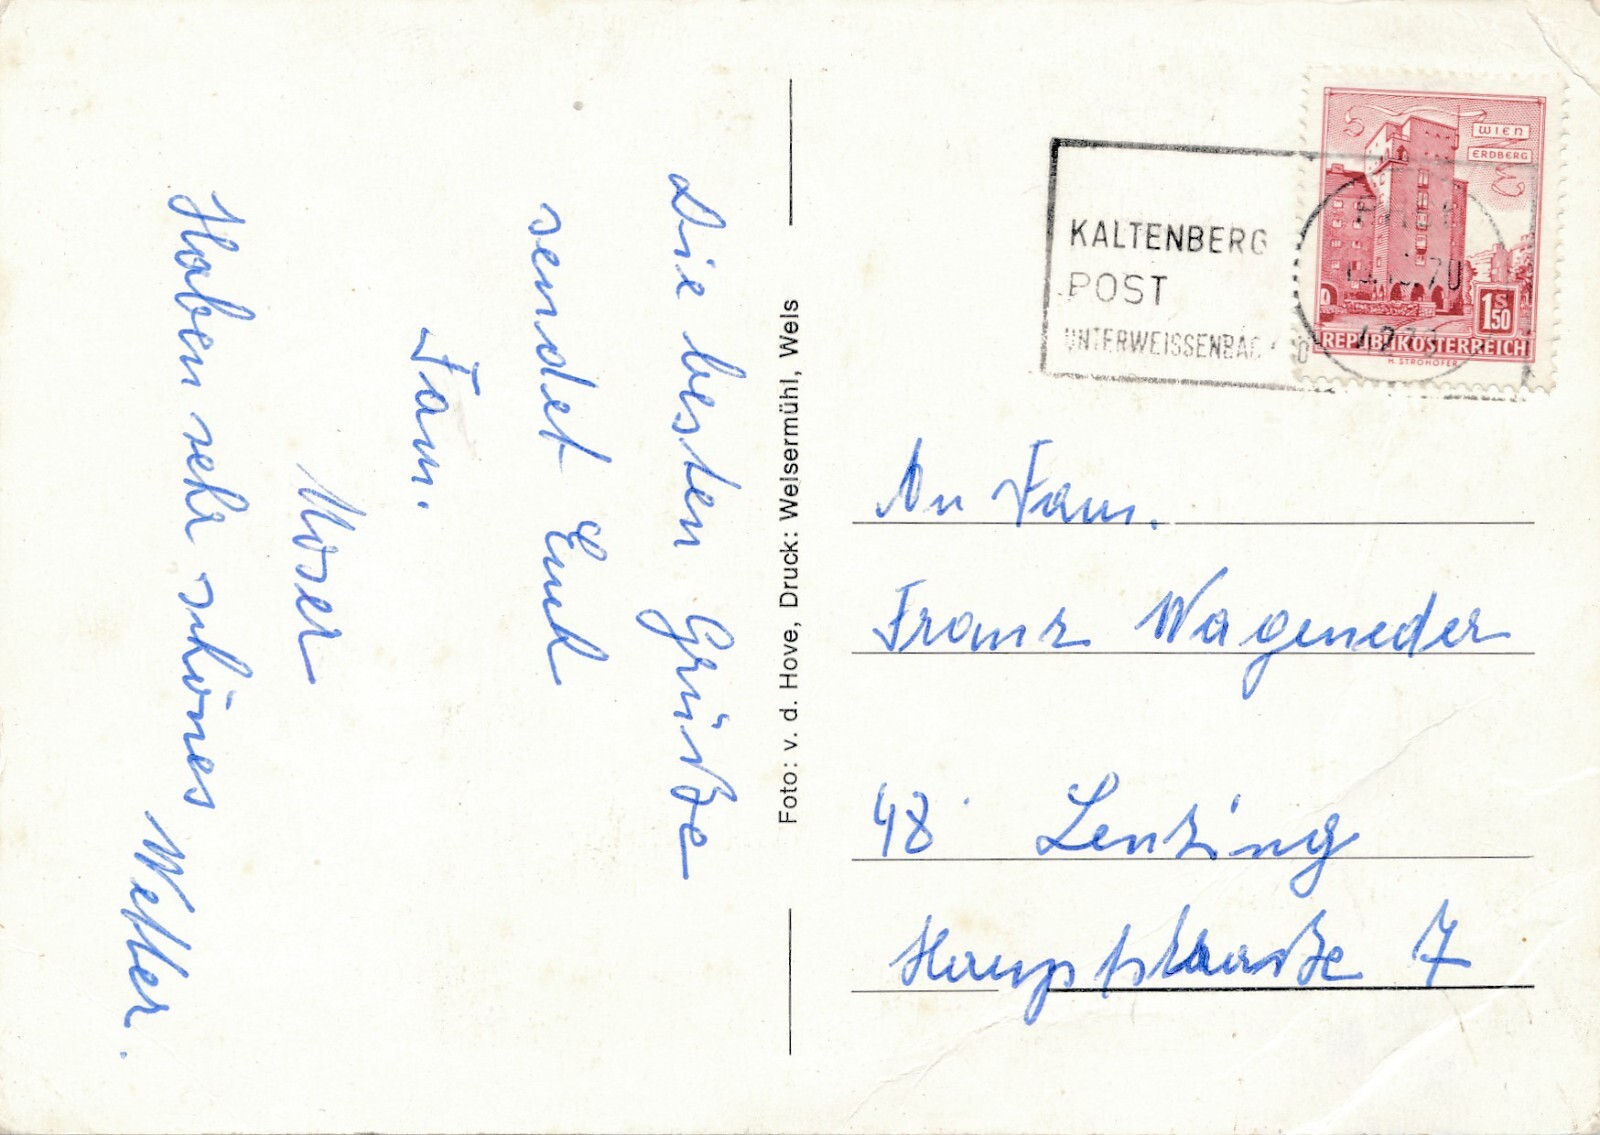 Die besten Grüße
sendet Euch
Fam.
Moser
Haben sehr schönes Wetter.
Foto: v. d. Hove, Druck: Welsermühl, Wels
KALTENBERG
POST
UNTERWEISSENBAC
70
WIEN
ERDBERG
1S
50
REPUBLIK ÖSTERREICH
H. STROHOFER
An Fam.
Franz Wageneder
48 Lenzing
Hauptstraße 7